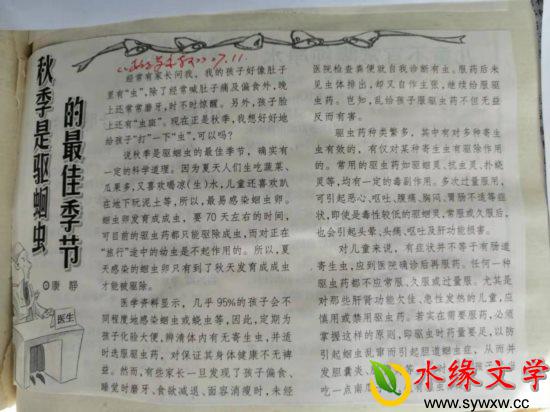 秋季是驱蛔虫
的最佳季节
⊙康 静
医生
经常有家长问我，我的孩子好像肚子
里有“虫”，除了经常喊肚子痛及偏食外，晚
上还常常磨牙，时不时惊醒。另外，孩子脸
上还有“虫斑”。现在正是秋季，我想好好地
给孩子“打”一下“虫”，可以吗？
说秋季是驱蛔虫的最佳季节，确实有
一定的科学道理。因为夏天人们生吃蔬菜、
瓜果多，又喜欢喝凉（生）水，儿童还喜欢趴
在地下玩泥土等，所以，最易感染虫卵。
蛔虫卵发育成成虫，要70天左右的时间，
可目前的驱虫药都只能驱除成虫，而对正在
“旅行”途中的幼虫是不起作用的。所以，夏
天感染的蛔虫卵只有到了秋天发育成成虫
才能被驱除。
医学资料显示，几乎95%的孩子会不
同程度地感染蛔虫或蛲虫等，因此，定期为
孩子化验大便，辨清体内有无寄生虫，并适
时选服驱虫药，对保证其身体健康不无裨
益。然而，有些家长一旦发现了孩子偏食、
睡觉时磨牙、食欲减退、面容消瘦时，未经
医院检查粪便就自我诊断有虫。服药后未
见虫体排出，却又自作主张，继续给服驱
虫药。也知，乱给孩子服驱虫药不但无益
反而有害。
驱虫药种类繁多，其中有对多种寄生
虫有效的，有仅对某种寄生虫有驱除作用
的。常用的驱虫药如驱蛔灵、抗虫灵、扑蛲
灵等，均有一定的毒副作用。多次过量服用，
可引起恶心、呕吐、腹痛、胸闷、胃肠不适等症
状，即使是毒性较低的驱蛔灵，常服或久服后，
也会引起头晕、头痛、呕吐及肝功能损害。
对儿童来说，有症状并不等于有肠道
寄生虫，应到医院确诊后再服药。任何一种
驱虫药都不应常服、久服或过量服。尤其是
对那些肝肾功能欠佳、急性发热的儿童，应
慎用或禁用驱虫药。若实在需要服药，必须
掌握这样的原则，即驱虫时药量要足，以防
引起蛔虫乱窜而引起胆道蛔虫症，从而并
发胆囊炎、
吃一点南瓜
水缘文学
www.sywxw.cc